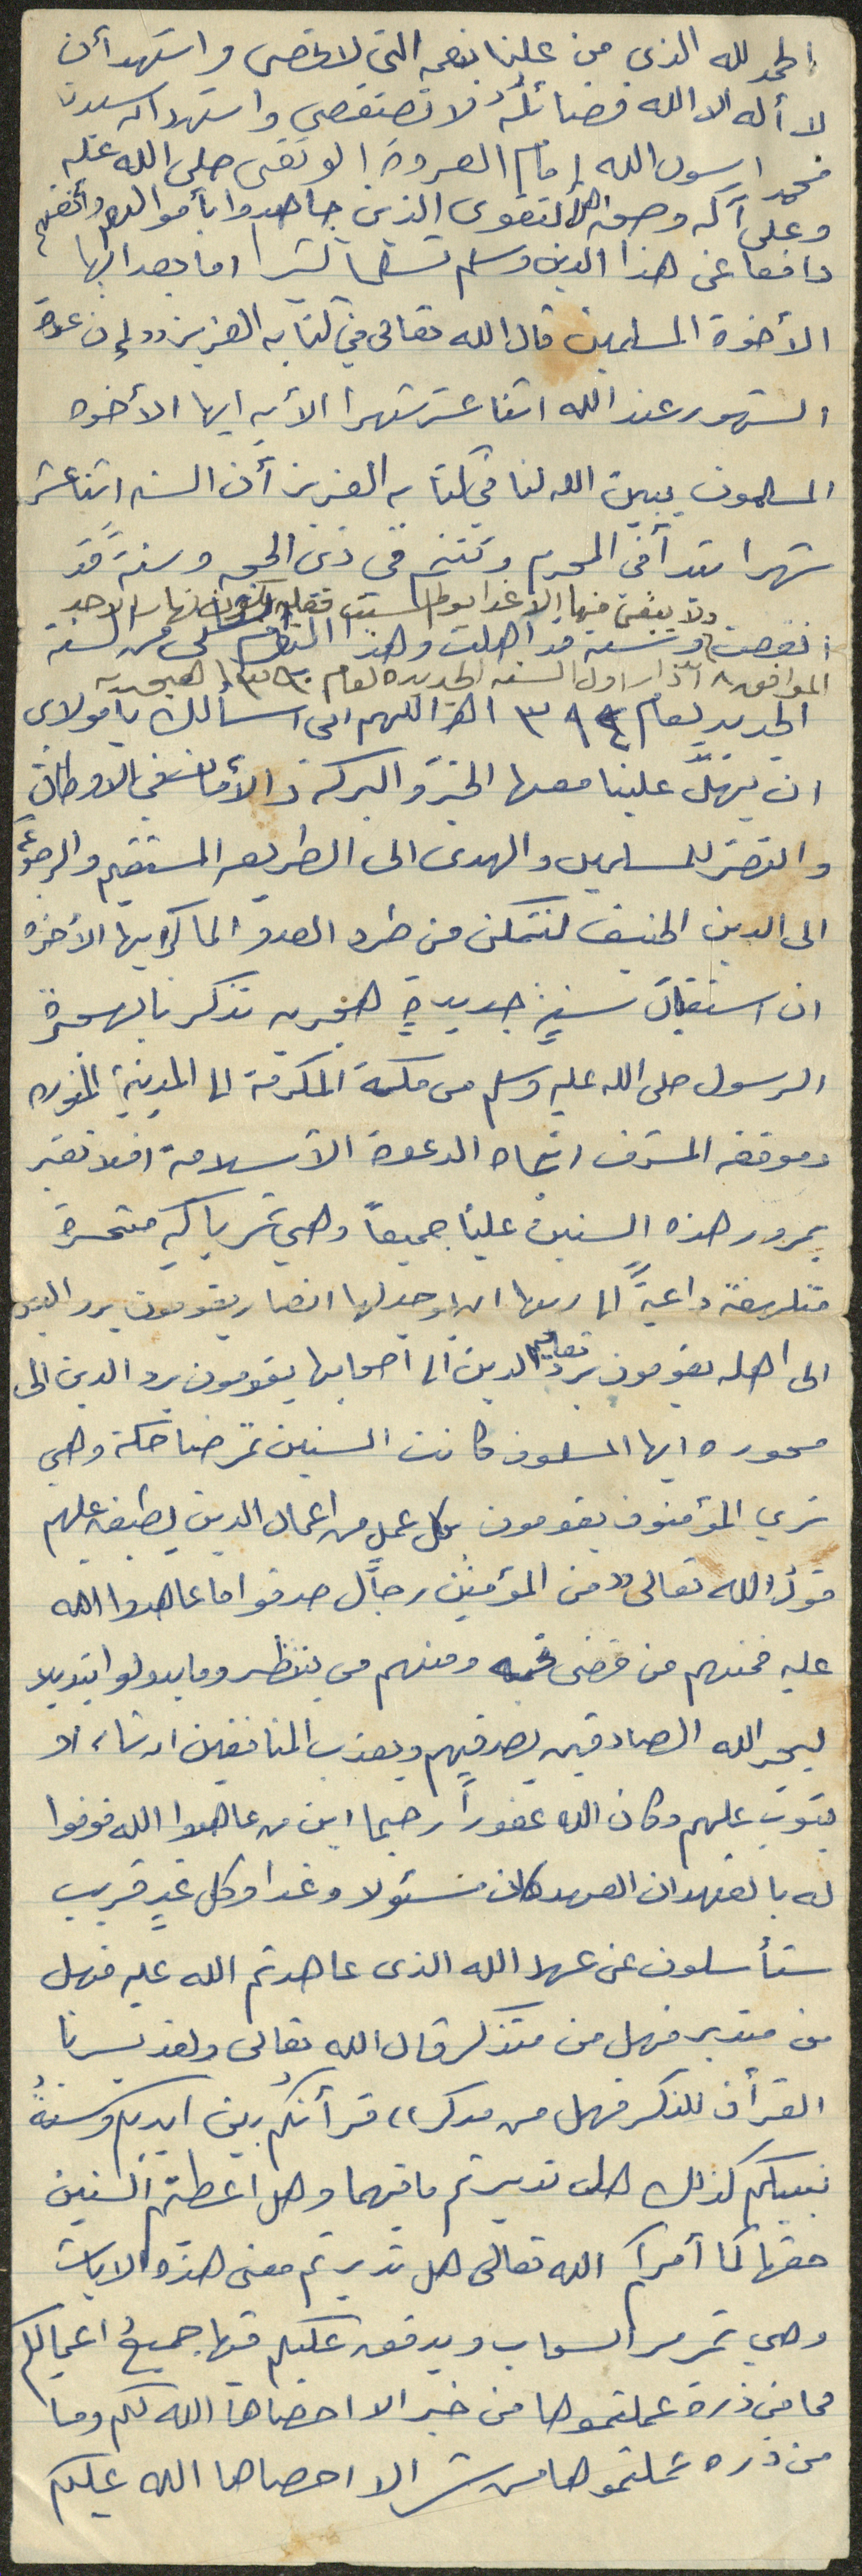 الحمد لله الذي من علينا بنعمه التي لا تحصى واشهد أن
لا أله الا الله فضائله لا تستقصى واشهد ان سيدنا
محمدا رسول الله إمام العروة الوثقى صلى الله عليه
وعلى آله وصحبه اهل التقوى الذين جاهدوا بأموالهم وأنفسهم
دافعا عن هذا الدين وسلم تسليما كثيرا اما بعد ايها
الأخوة المسلمين قال الله تعالى في كتابه العزيز ،، إن عدة
الشهور عند الله اثنا عشر شهرا الأيه ايها الأخوه
المسلمون يبين الله لنا في كتابه العزيز أن السنه اثنا عشر
شهرا تبدأ في المحرم وتختم في ذي الحجه وسنةً قد
ولا يبقى منها إلا غدا يوم السبت فقط يكون نهار الاحد
انقضت وسنه قد اهلت وهذا من السنة
الموافق ٨ آذار اول السنه الجديده لعام هجريه
الجديد لعام ١٣٩٤ اللهم اني اسألك يا مولاي
ان تهلّ علينا معها الخير والبركه والأمان في الاوطان
والنصر للمسلمين والهدى الى الطريق المستقيم والرجوع
الى الدين الحنيف لنتمكن من طرد العدو الماكر ايها الأخوه
ان استقبال سنةٍ جديدةٍ هجريه تذكرنا بهجرة
الرسول صلى الله عليه وسلم من مكة المكرمة الى المدينة المنوره
وموقفه المشرف اتجاه الدعوة الأسلامية افلا نعتبر
بمرور هذه السنين علينا جميعاً وهي تمر باكيه متحسرة
متلهفة داعيةً الى ربها ان يوجد لها انصار يقومون برد
الى اهله يقومون برد تعاليم الدين الى اصحابها يقومون برد الدين الى
محوره ايها المسلمون كانت السنين تمر ضاحكة وهي
ترى المؤمنون يقومون بكل عملٍ من اعمال الدين يطبق عليهم
قول الله تعالى ،، من المؤمنين رجال صدقوا ما عاهدوا الله
عليه فمنهم من قضى نحبه ومنهم من ينتظر وما بدلوا تبديلا
ليجز الله الصادقين بصدقهم ويعذب المنافقين ان شاء او
يتوب عليهم وكان الله غفوراً رحيما اين من عاهدوا الله فوفوا
له بالعهد ان العهد كان مسئولا وغدا وكل غدٍ قريب
ستأسلون عن عهد الله الذي عاهدتم الله عليه فهل
من متدبر فهل من متذكر قال الله تعالى ولقد يسرنا
القرأن للذكر فهل من مدكر ،، قرأنكم بين ايديكم وسنةُ
نبيكم كذلك هل تدبرتم ما فيهما وهل اعطيتم السنين
حقها كما أمركم الله تعالى هل تدبرتم معنى هذه الايات
وهي تمر مر السحاب ويدقق عليكم فيها جميع اعمالكم
فما من ذرة عملتموها من خير الا احصاها الله لكم وما
من ذره عملتموها من شر الا احصاها الله عليكم